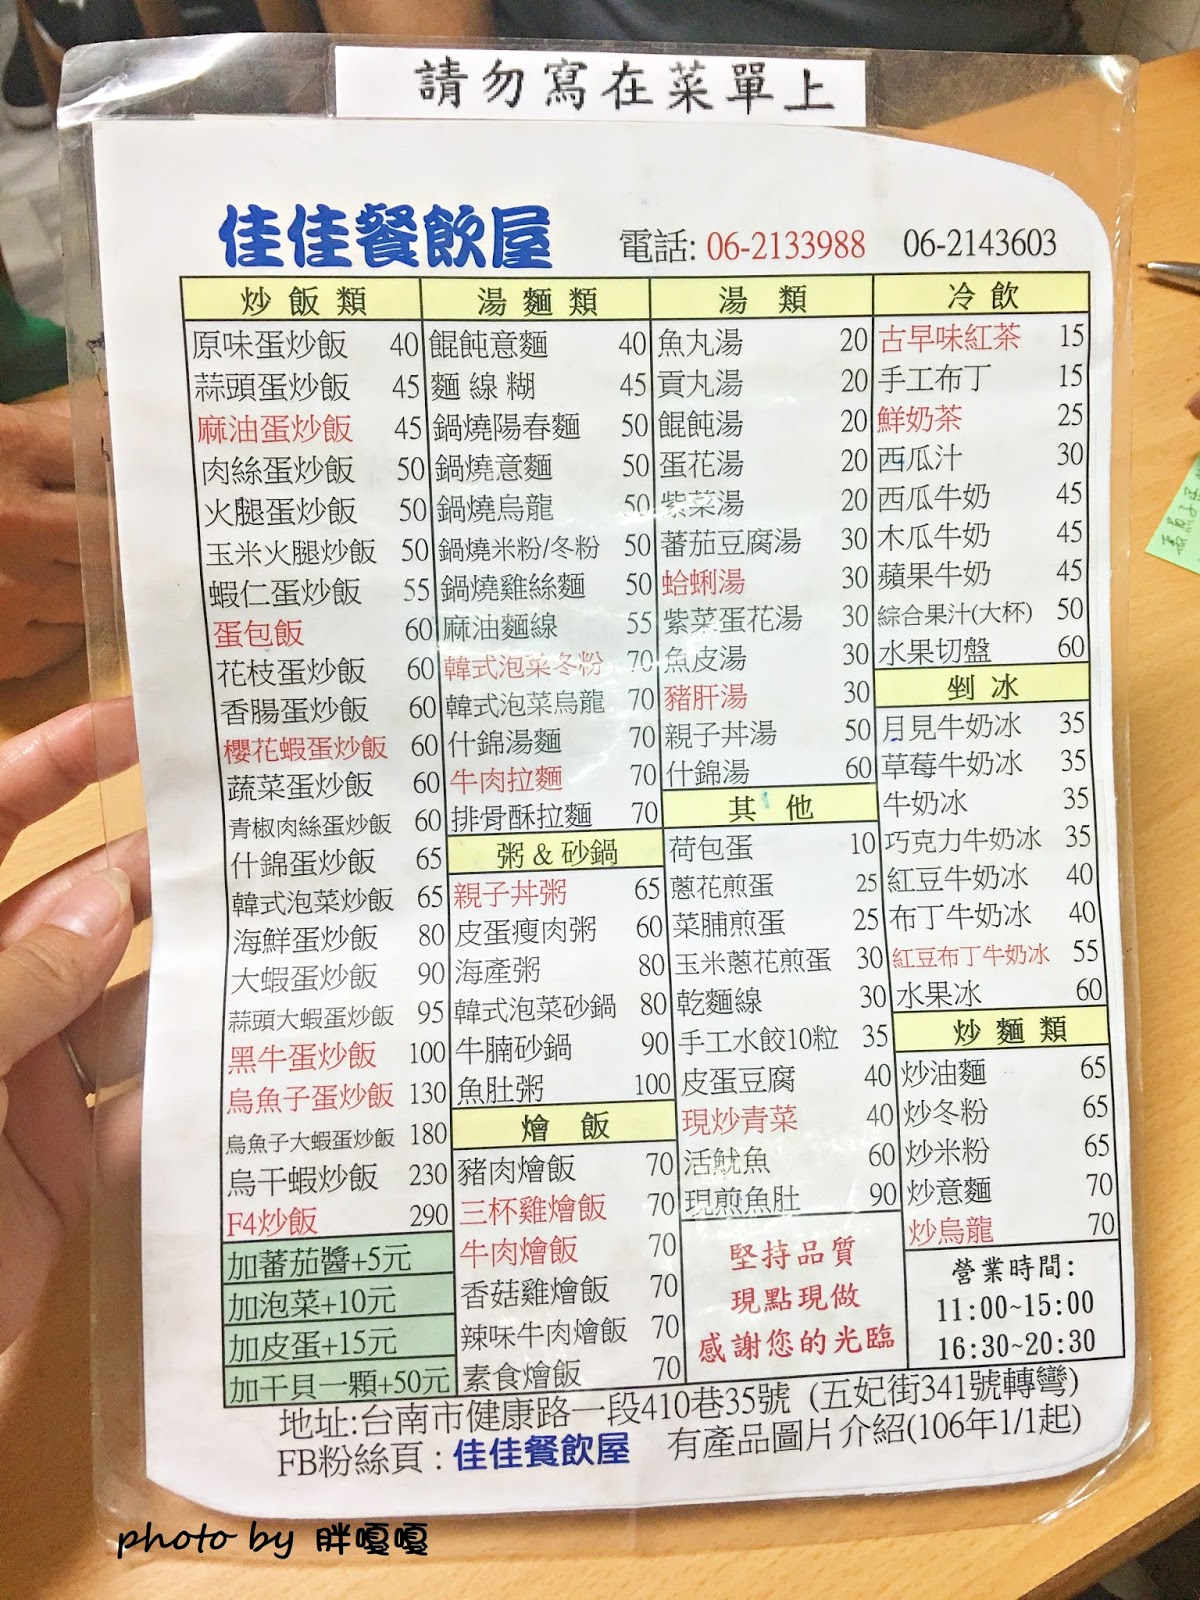 請勿寫在菜單上
佳佳餐飲屋 電話: 06-2133988 06-2143603
炒飯類
原味蛋炒飯 40
蒜頭蛋炒飯 45
麻油蛋炒飯 45
肉絲蛋炒飯 50
火腿蛋炒飯 50
玉米火腿炒飯 50
蝦仁蛋炒飯 55
蛋包飯 60
花枝蛋炒飯 60
香腸蛋炒飯 60
櫻花蝦蛋炒飯 60
蔬菜蛋炒飯 60
青椒肉絲蛋炒飯 60
什錦蛋炒飯 65
韓式泡菜炒飯 65
海鮮蛋炒飯 80
大蝦蛋炒飯 90
蒜頭大蝦蛋炒飯 95
黑牛蛋炒飯 100
烏魚子蛋炒飯 130
烏魚子大蝦蛋炒飯 180
烏干蝦炒飯 230
F4炒飯 290
加蕃茄醬+5元
加泡菜+10元
加皮蛋+15元
加干貝一顆+50元
湯麵類
餛飩意麵 40
麵線糊 45
鍋燒陽春麵 50
鍋燒意麵 50
鍋燒烏龍 50
鍋燒米粉/冬粉 50
鍋燒雞絲麵 50
麻油麵線 55
韓式泡菜冬粉 70
韓式泡菜烏龍 70
什錦湯麵 70
牛肉拉麵 70
排骨酥拉麵 70
粥&砂鍋
親子丼粥 65
皮蛋瘦肉粥 60
海產粥 80
韓式泡菜砂鍋 80
牛腩砂鍋 90
魚肚粥 100
燴飯
豬肉燴飯 70
三杯雞燴飯 70
牛肉燴飯 70
香菇雞燴飯 70
辣味牛肉燴飯 70
素食燴飯 70
湯類
魚丸湯 20
貢丸湯 20
餛飩湯 20
蛋花湯 20
紫菜湯 20
蕃茄豆腐湯 30
蛤蜊湯 30
紫菜蛋花湯 30
魚皮湯 30
豬肝湯 30
親子丼湯 50
什錦湯 60
其他
荷包蛋 10
蔥花煎蛋 25
菜脯煎蛋 25
玉米蔥花煎蛋 30
乾麵線 30
手工水餃10粒 35
皮蛋豆腐 40
現炒青菜 40
活魷魚 60
現煎魚肚 90
堅持品質
現點現做
感謝您的光臨
冷飲
古早味紅茶 15
手工布丁 15
鮮奶茶 25
西瓜汁 30
西瓜牛奶 45
木瓜牛奶 45
蘋果牛奶 45
綜合果汁(大杯) 50
水果切盤 60
剉冰
月見牛奶冰 35
草莓牛奶冰 35
牛奶冰 35
巧克力牛奶冰 35
紅豆牛奶冰 40
布丁牛奶冰 40
紅豆布丁牛奶冰 55
水果冰 60
炒麵類
炒油麵 65
炒冬粉 65
炒米粉 65
炒意麵 70
炒烏龍 70
營業時間:
11:00~15:00
16:30~20:30
地址:台南市健康路一段410巷35號 (五妃街341號轉彎)
FB粉絲頁: 佳佳餐飲屋 有產品圖片介紹(106年1/1起)
photo by 胖嘎嘎